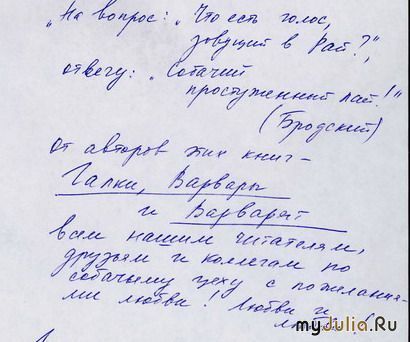 „На вопрос: „Что есть голос,
зовущий в Рай?",
отвечу: „Собачий
простуженный лай!"
(Бродский)
от авторов этих книг –
Галки, Варвары
и Варварят
всем нашим читателям,
друзьям и коллегам по
собачьему цеху с пожелания-
ми любви! Любви и
myJulia.Ru